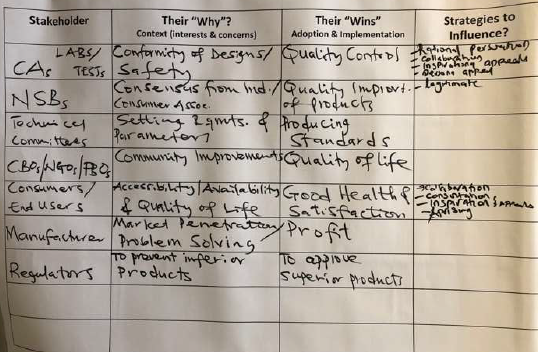 Stakeholder
Their "Why"?
Context (interests & concerns)
Their "Wins"
Adoption & Implementation
Strategies to
Influence?
LABs/
CAs TESTs
Conformity of Designs/
Safety
Quality Control
- Rational persuation
- collaboration
- inspirational appeals
- personal appeal
NSBs
Consensus from Ind./
Consumer Assoc.
Quality Improt.
of products
- Legitimate
Technical
Committees
Setting Rqmts. &
Parameters
Producing
Standards
CBOs/NGOs/FBOs
Community Improvements
Quality of life
Consumers/
End Users
Accessibility/Availability
& Quality of Life
Good Health &
Satisfaction
collaboration
- consultation
- inspirational appeals
Manufacturer
Market Penetration/
Problem Solving
Profit
Regulators
To prevent inferior
Products
To approve
superior products